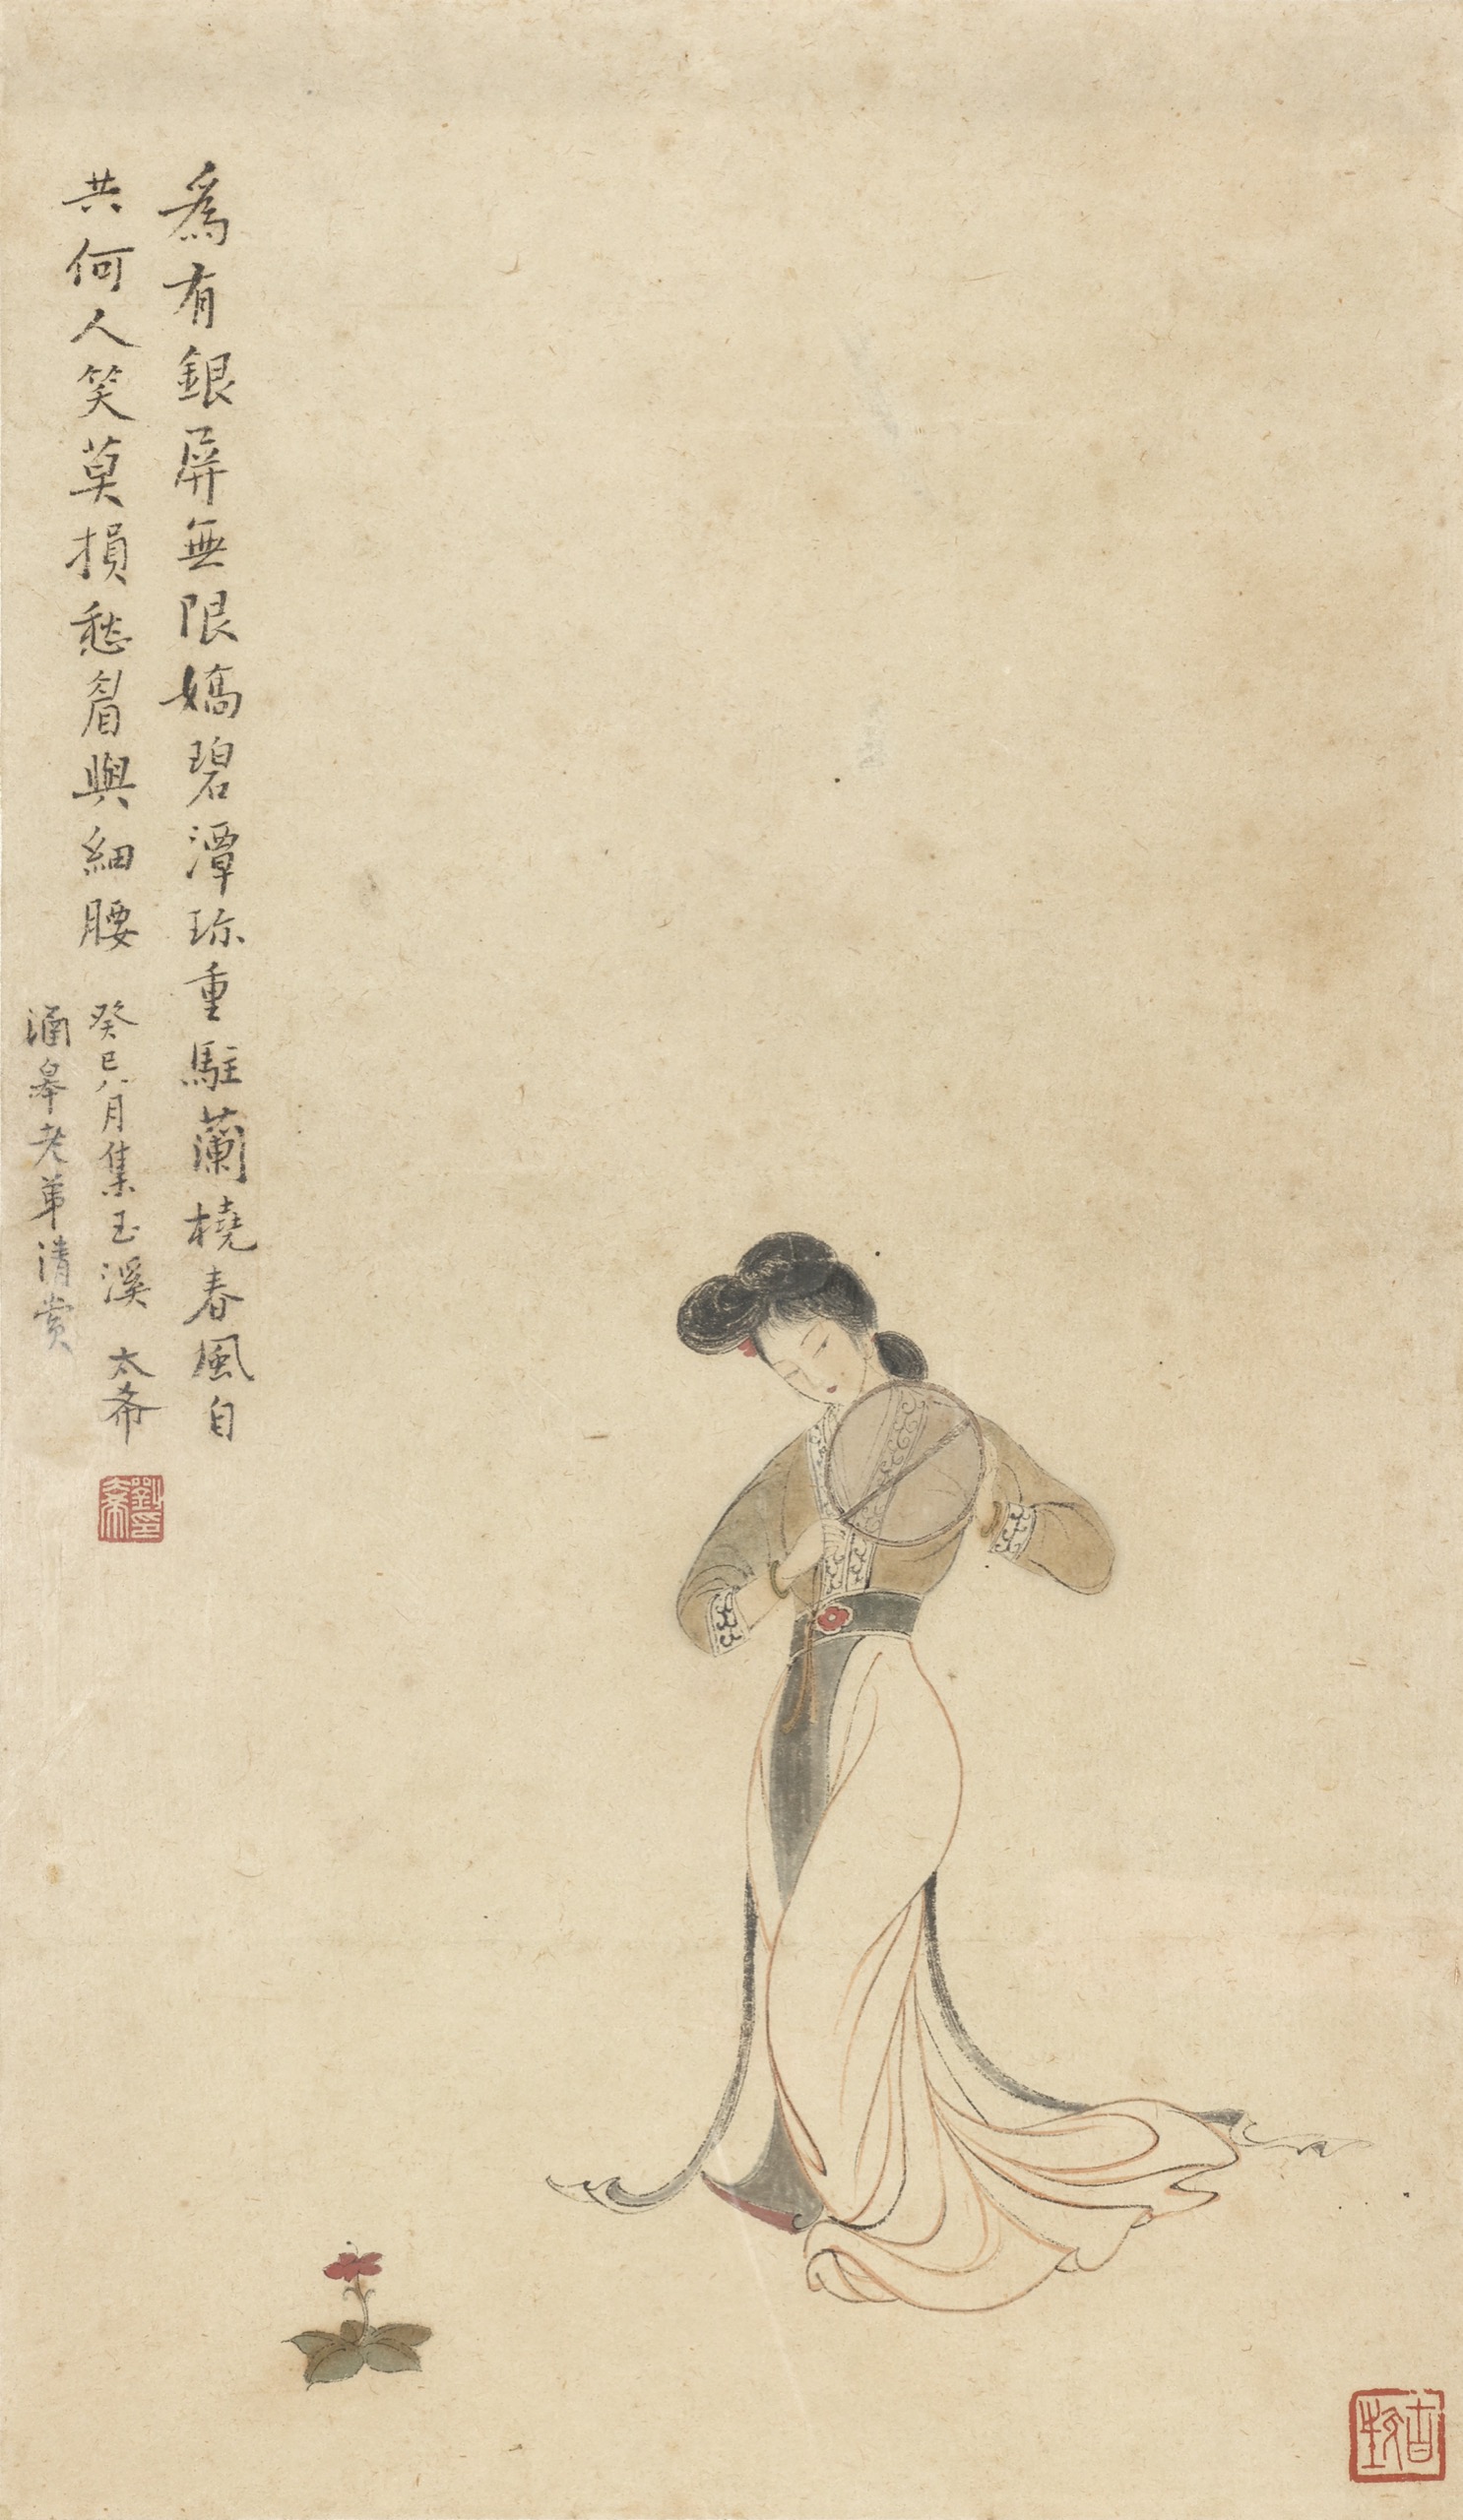 為有銀屏無限嬌碧潭珎重駐蘭橈春風自
共何人笑莫損愁眉與細腰
癸巳八月集玉溪 太希
涵皋老弟清賞
劉印
太希